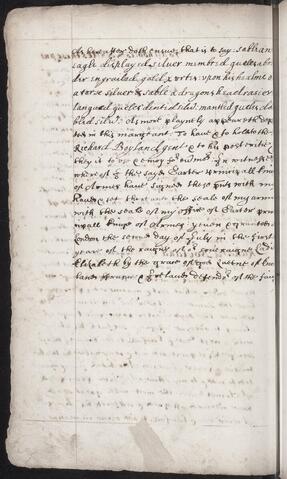 as hereafter doth ensue, that is to say sable an
eagle displayed silver membred gules a bor
der engrailed gold & vert upon his healme on
a torse silver & sable a dragons head rasie
langued gules dented silv. mantled gules do
bled silv. as more playnly appeareth depic
ted in this margeant. To have & to hold to the
Richard Boyland gent. & to his posteritie
they it to use & enjoy for ever. In witnesse
where of I the sayd Garter prinsipall king
of Armes have signed these pnts with my
hand & set there unto the seale of my armes
with the seale of my office of Garter prin
cipall kinge of Armes yeven & granted at
London the second day of July in the first
year of the raigne of or soveraigne Ladi
Elizabeth by the grace of God Queene of En
land fraunce & Ireland defendr of the fay